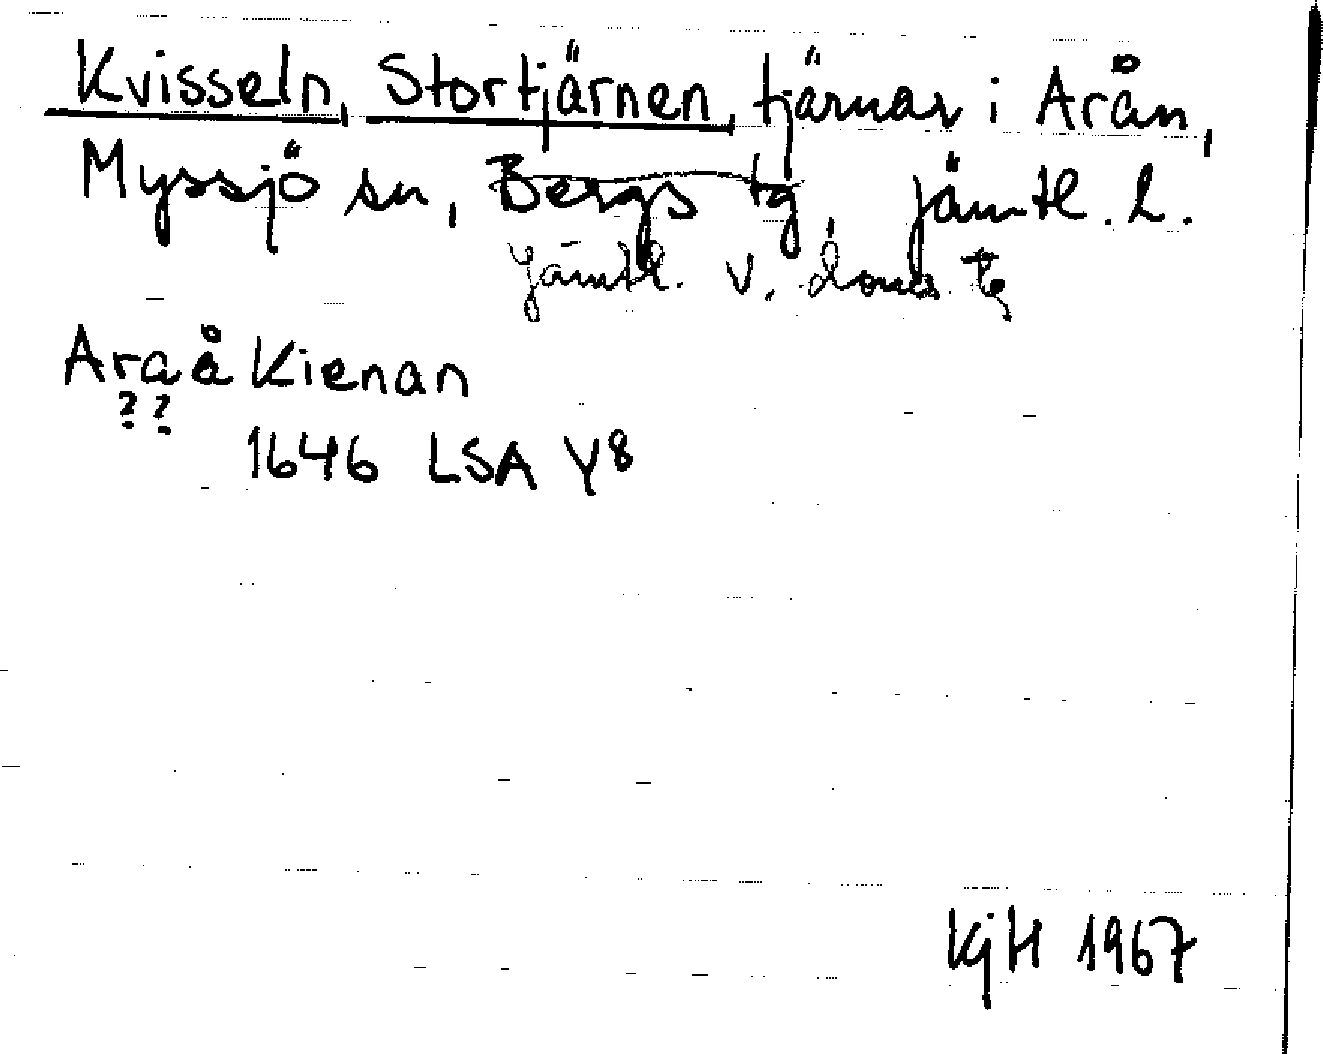 Kvisseln, Stortjärnen, tjärnar i Arån,
Myssjö sn, Bergs tg, Jämtl. l.
Jämtl. v. doms. tg
Ara å Kienan
? ?
1646 LSA Y8
KjH 1967